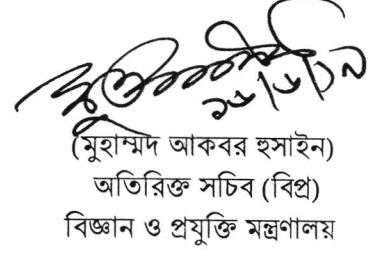 ১৮/৮/১৯
(মুহাম্মদ আকবর হুসাইন)
অতিরিক্ত সচিব (বিপ্র)
বিজ্ঞান ও প্রযুক্তি মন্ত্রণালয়